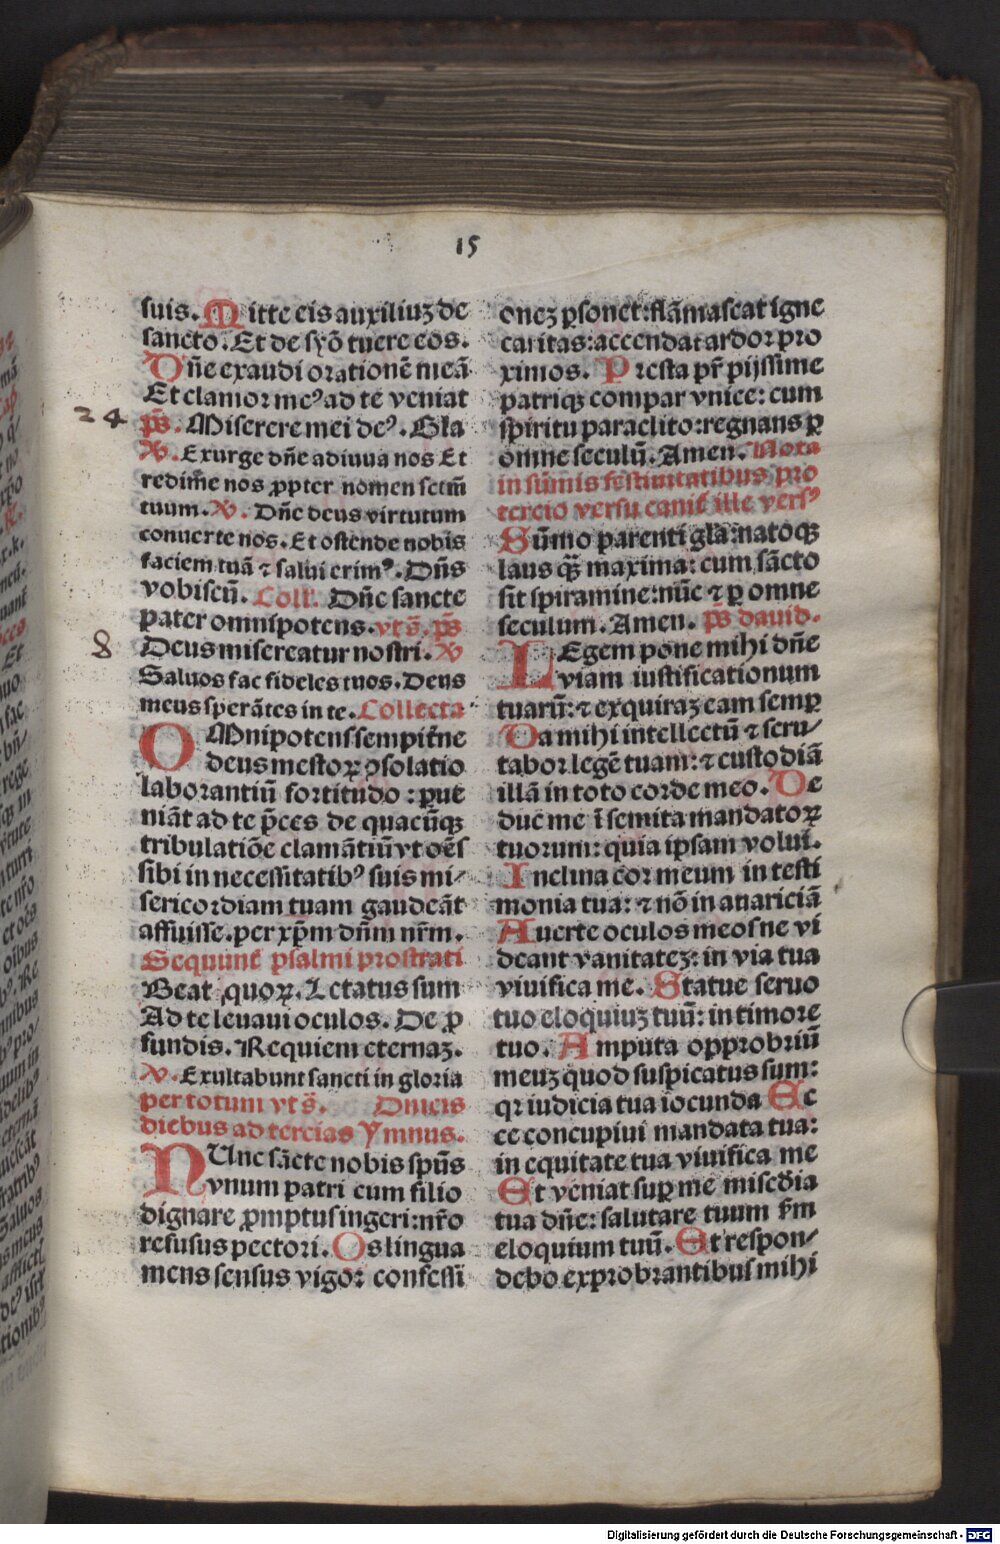 15
suis. Mitte eis auxiliuʒ de
sancto. Et de syõ tuere eos.
Dñe exaudi orationẽ meã
Et clamor meꝰ ad te veniat
24
ps̃. Miserere mei deꝰ. Gla
℣. Exurge dñe adiuua nos Et
redim̃e nos ꝓpter nomen sctm̃
tuum. ℣. Dñe deus virtutum
conuerte nos. Et ostende nobis
faciem tuã ⁊ salui erimꝰ. Dñs
vobiscũ. Coll'. Dñe sancte
pater omnipotens. vts̃. ps̃
8
Deus misereatur nostri. ℣
Saluos fac fideles tuos. Deus
meus sperãtes in te. Collecta
OMnipotens sempit̃ne
deus mestoꝝ ↄsolatio
laborantiũ fortitudo : ꝑue
niãt ad te p̃ces de quacũqꝫ
tribulatiõe clamãtiũ vt oẽs
sibi in necessitatibꝰ suis mi⸗
sericordiam tuam gaudeãt
affuisse. per xp̃m dñm nr̃m.
Sequunt̃ psalmi prostrati
Beati quoꝝ. Letatus sum
Ad te leuaui oculos. De ꝓ
fundis. Requiem eternaʒ.
℣. Exultabunt sancti in gloria
per totum vts̃. Dn̄icis
diebus ad tercias Ymnus.
NUnc sãcte nobis spũs
vnum patri cum filio
dignare ꝓmptus ingeri: nr̃o
refusus pectori. Os lingua
mens sensus vigor confessi
oneʒ ꝑsonet: flãmascat igne
caritas: accendat ardor pro
ximos. Presta pr̃ pijssime
patriqꝫ compar vnice: cum
spiritu paraclito: regnans ꝑ
omne seculũ. Amen. Nota
in sũmis festiuitatibus pro
tercio versu canit̃ ille versꝰ
Sũmo parenti gl̃a: natoqꝫ
laus q̃ꝫ maxima: cum sãcto
sit spiramine: nũc ⁊ ꝑ omne
seculum. Amen. ps̃ dauid.
LEgem pone mihi dñe
viam iustificationum
tuarũ: ⁊ exquiraʒ eam semꝑ
Da mihi intellectũ ⁊ scru⸗
tabor legẽ tuam: ⁊ custodiã
illã in toto corde meo. De
duc me ĩ semita mandatoꝝ
tuorum: quia ipsam volui.
Inclina cor meum in testi
monia tua: ⁊ nõ in auariciã
Auerte oculos meos ne vi
deant vanitateʒ: in via tua
viuifica me. Statue seruo
tuo eloquiuʒ tuũ: in timore
tuo. Amputa opprobriũ
meuʒ quod suspicatus sum:
qꝛ iudicia tua iocunda Ec
ce concupiui mandata tua:
in equitate tua viuifica me
Et veniat suꝑ me mis̃cdia
tua dñe: salutare tuum s̃m
eloquium tuũ. Et respon⸗
debo exprobrantibus mihi
Digitalisierung gefördert durch die Deutsche Forschungsgemeinschaft - DFG